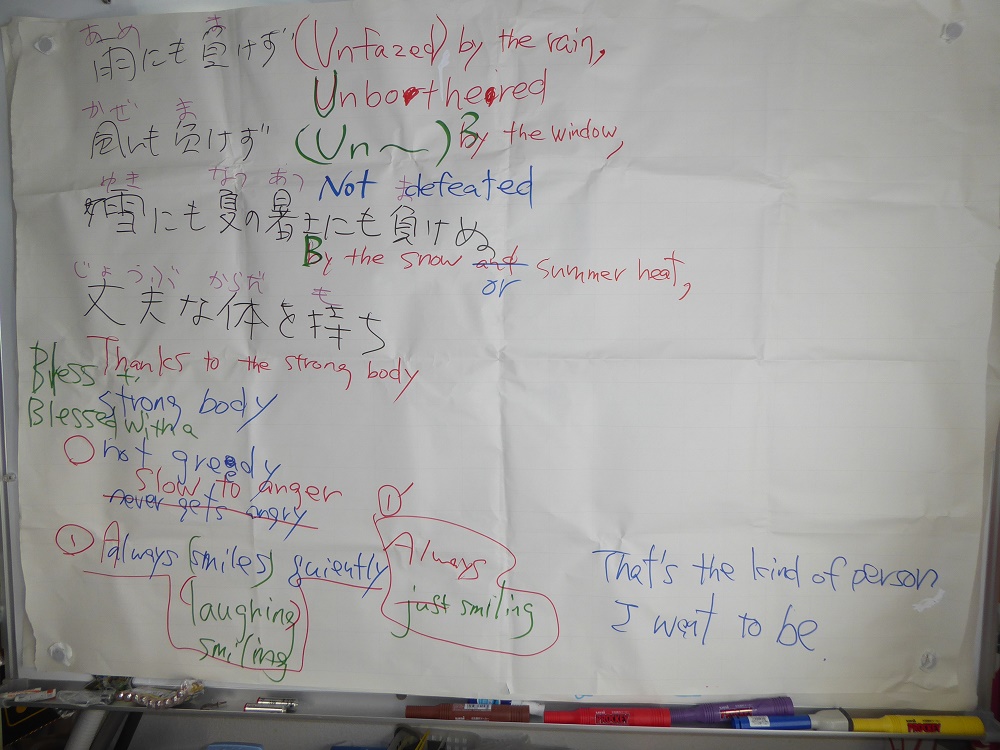 あめ ま
雨にも負けず (Unfazed) by the rain,
Unbothered
かぜ ま
風にも負けず (Un~) By the window,
Not defeated
ゆき なつ あつ ま
雪にも夏の暑さにも負けぬ
By the snow and summer heat,
or
じょうぶ からだ も
丈夫な体を持ち
Thanks to the strong body
Bless
strong body
Blessed with a
not greedy
slow to anger
never gets angry
① Always (smiles) quiently
laughing
smiling
①
Always
just smiling
That's the kind of person
I want to be.